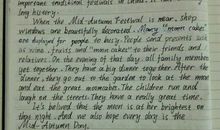 important traditional festivals in China. It has a
long history.
When the Mid-Autumn Festival is near, shop
windows are beautifully decorated. Many "moon cakes"
are displayed for people to buy. People send presents such
as wine, fruits and "moon cakes" to their friends and
relatives. On the evening of that day, all family members
get together. They have a big dinner together. After the
dinner, they go out to the garden to look at the moon
and eat the great mooncakes. The children run and
laugh on the streets. They have a really great time.
It's believed that the moon is at her brightest on
this night. And we also hope every day is the
Mid-Autumn Day.